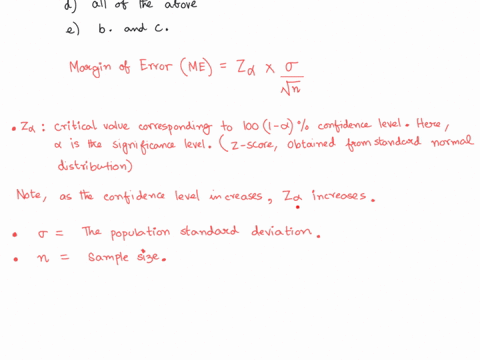 d) all of the above
e) b. and c.
Margin of Error (ME) = Zα × σ/√n
• Zα : Critical value corresponding to 100 (1-α) % confidence level. Here,
α is the significance level. (Z-score, obtained from standard normal
distribution)
Note, as the confidence level increases, Zα increases.
• σ = The population standard deviation.
• n = Sample size.